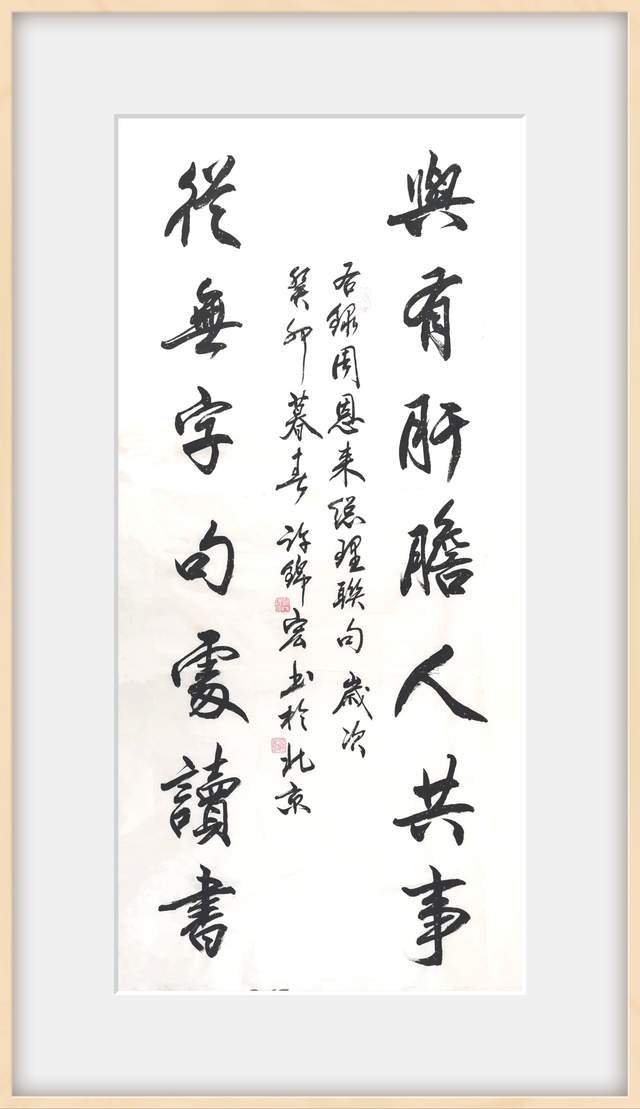 與有肝膽人共事
從無字句處讀書
右録周恩来總理聯句 歲次
癸卯暮春 許錦宏书於北京